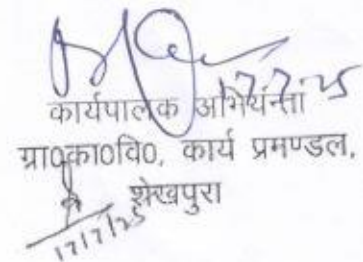 17.7.25
कार्यपालक अभियंता
ग्रा०का०वि०, कार्य प्रमण्डल,
शेखपुरा
17/7/25